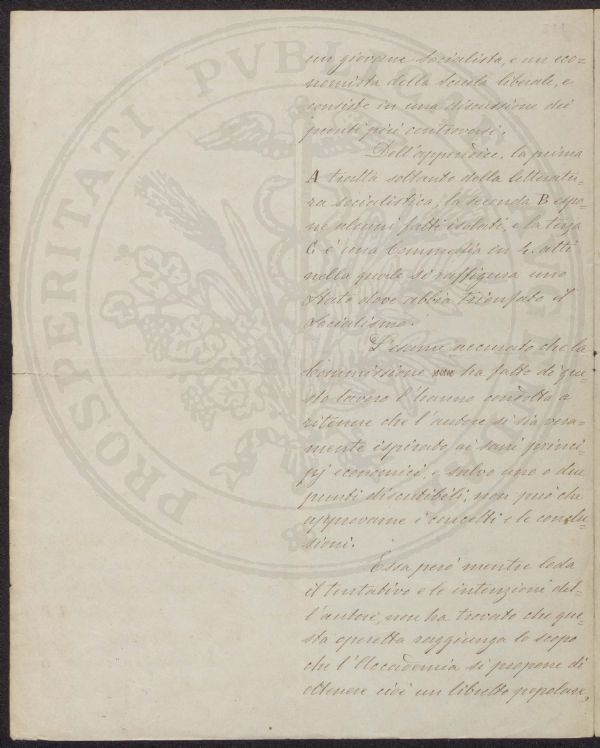 un giovane socialista, e un eco=
nomista della scuola liberale, e
consiste in una discussione dei
punti più controversi.
Dell'appendice, la prima
A tratta soltanto della letteratu=
ra socialistica, la seconda B espo=
ne alcuni fatti isolati, e la terza
C è una Commedia in 4 atti
nella quale si raffigura uno
Stato dove abbia trionfato il
Socialismo.
L'esame accurato che la
Commissione ha fatto di que=
sto lavoro l'hanno condotta a
ritenere che l'autore si sia vera=
mente ispirato ai sani princi=
pj economici, e salvo uno o due
punti discutibili, non può che
approvarne i concetti e le conclu=
sioni.
Essa però mentre loda
il tentativo e le intenzioni del=
l'autore, non ha trovato che que=
sta operetta raggiunga lo scopo
che l'Accademia si propone di
ottenere cioè un libretto popolare,
PROSPERITATI PVBLICAE